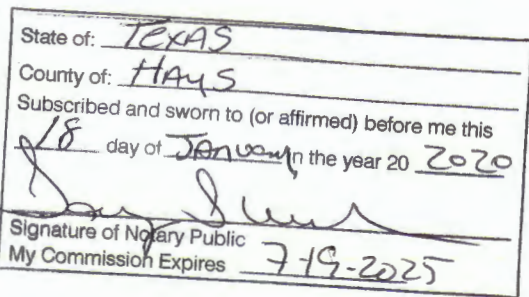 State of: TEXAS
County of: HAYS
Subscribed and sworn to (or affirmed) before me this
18 day of January in the year 20 2020
Signature of Notary Public
My Commission Expires 7-19-2025